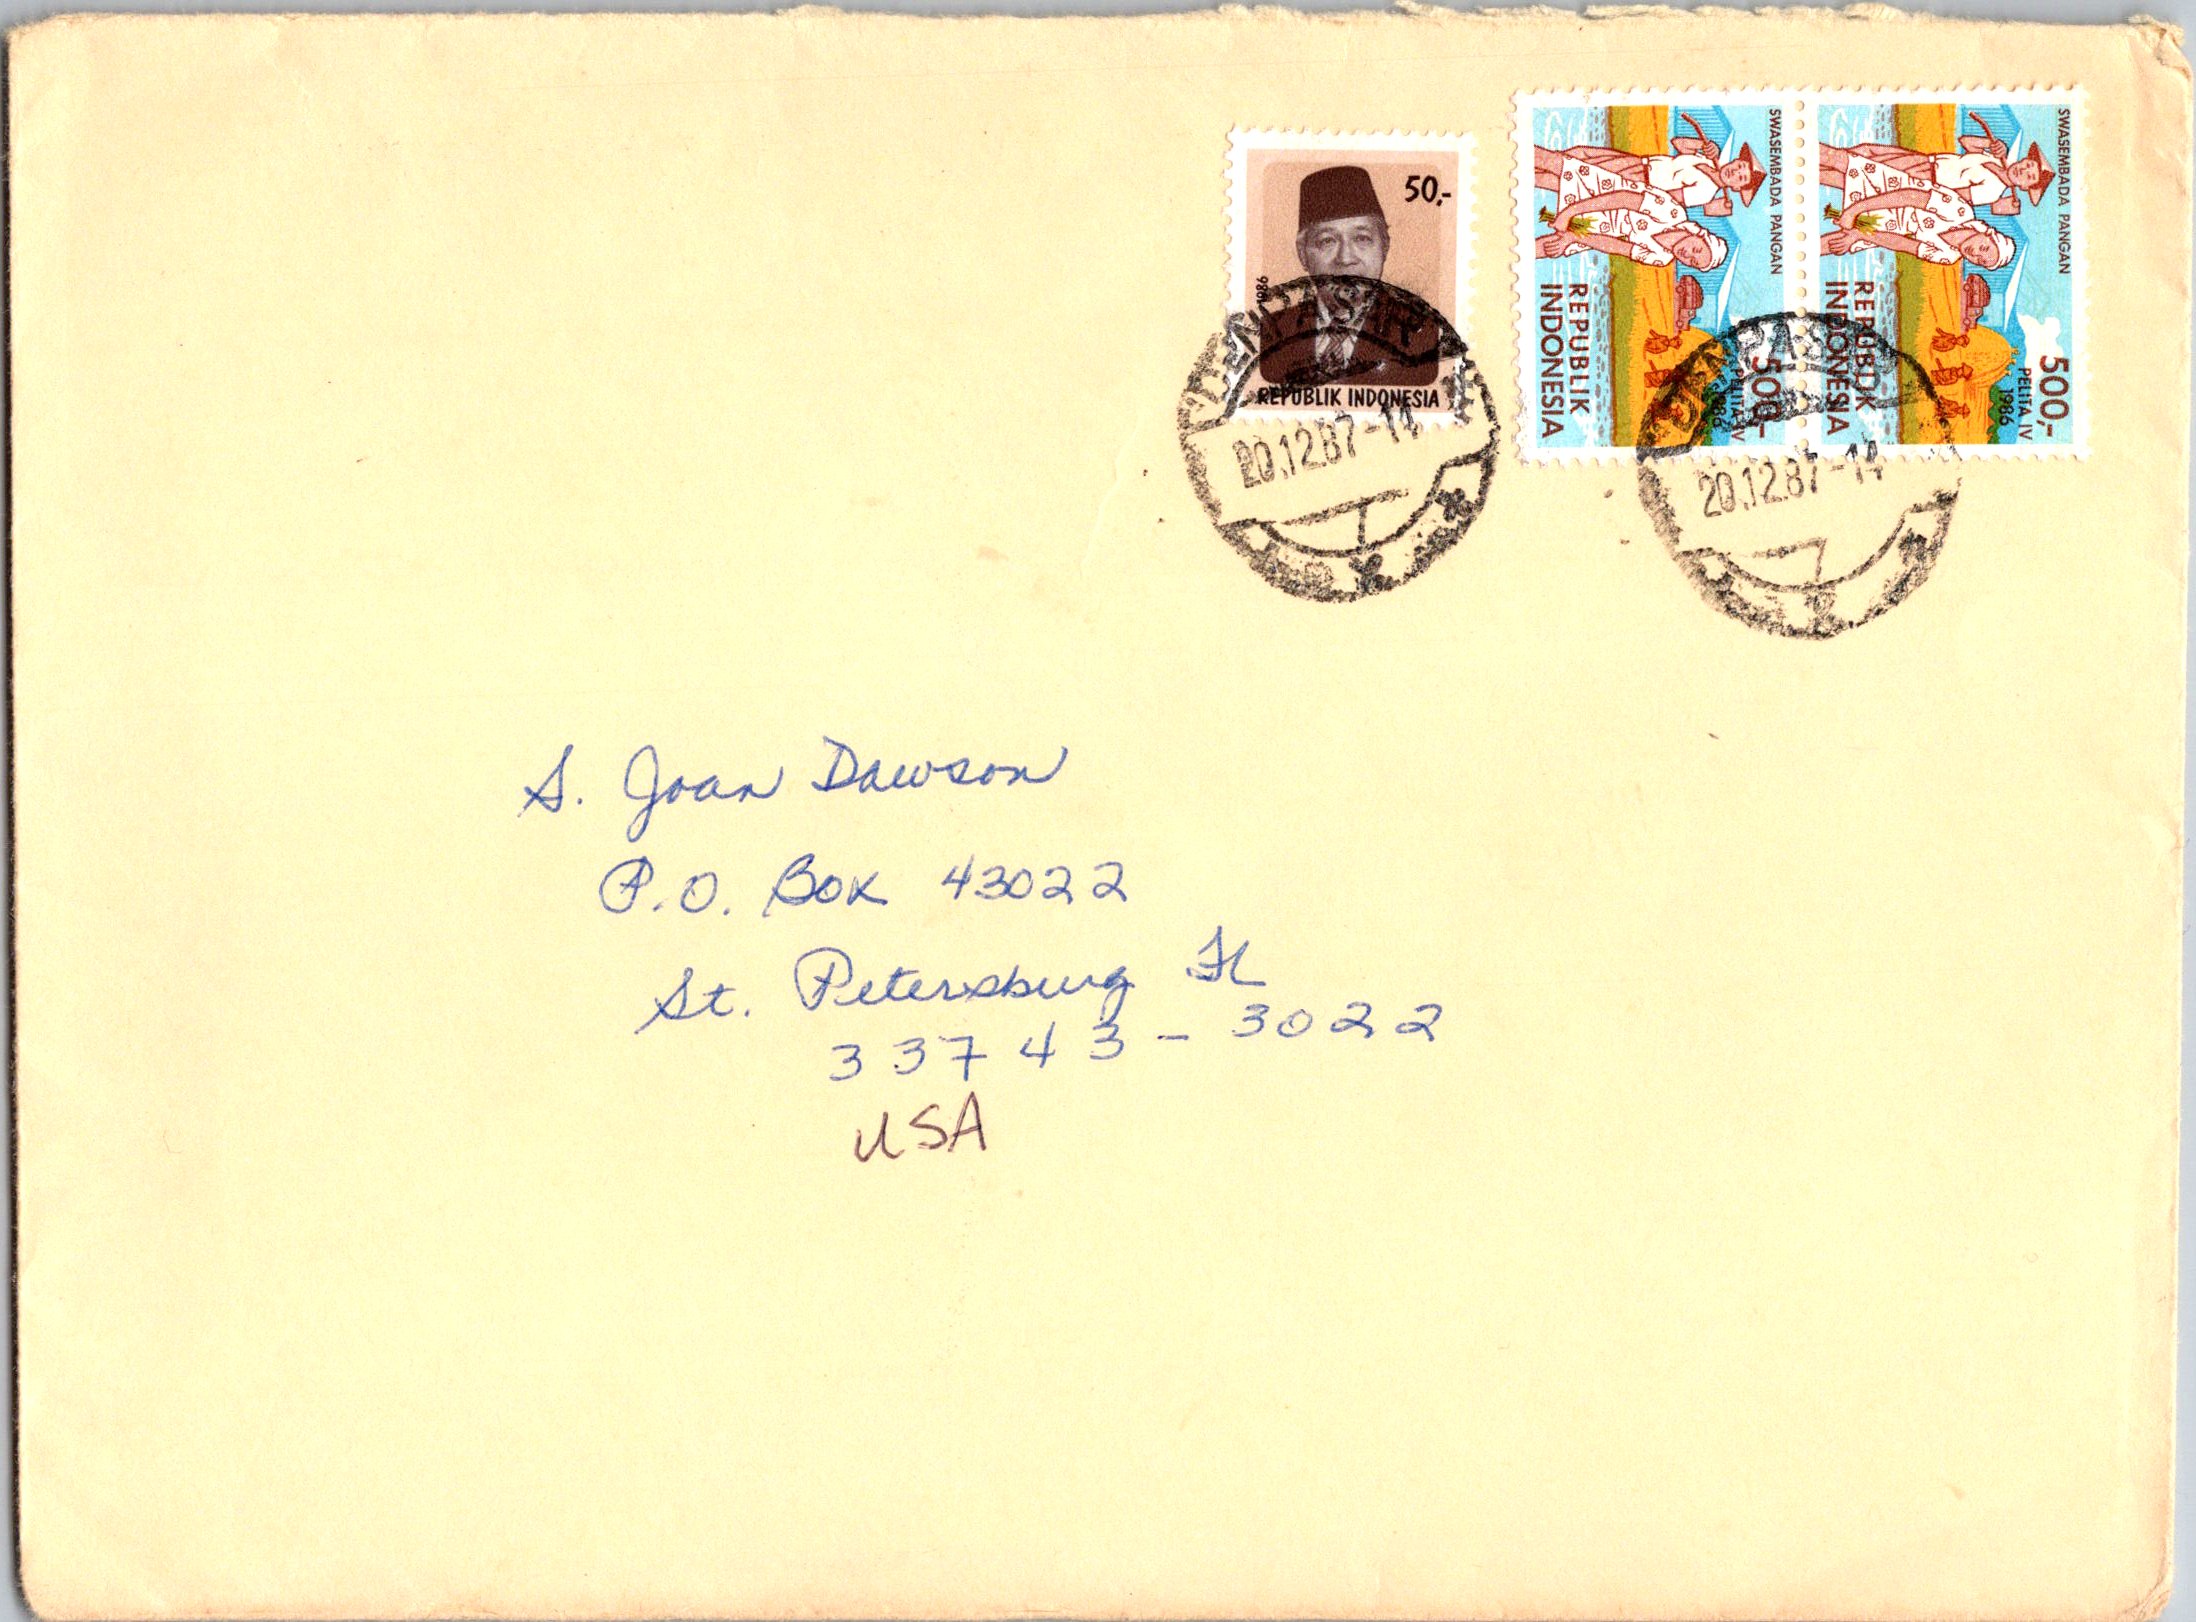 50,-
1986
REPUBLIK INDONESIA
SWASEMBADA PANGAN
REPUBLIK
INDONESIA
500,-
PELITA IV
1986
SWASEMBADA PANGAN
REPUBLIK
INDONESIA
500,-
PELITA IV
1986
DENPASAR
20.12.87-14
DENPASAR
20.12.87-14
S. Joan Dawson
P.O. Box 43022
St. Petersburg FL
33743-3022
USA